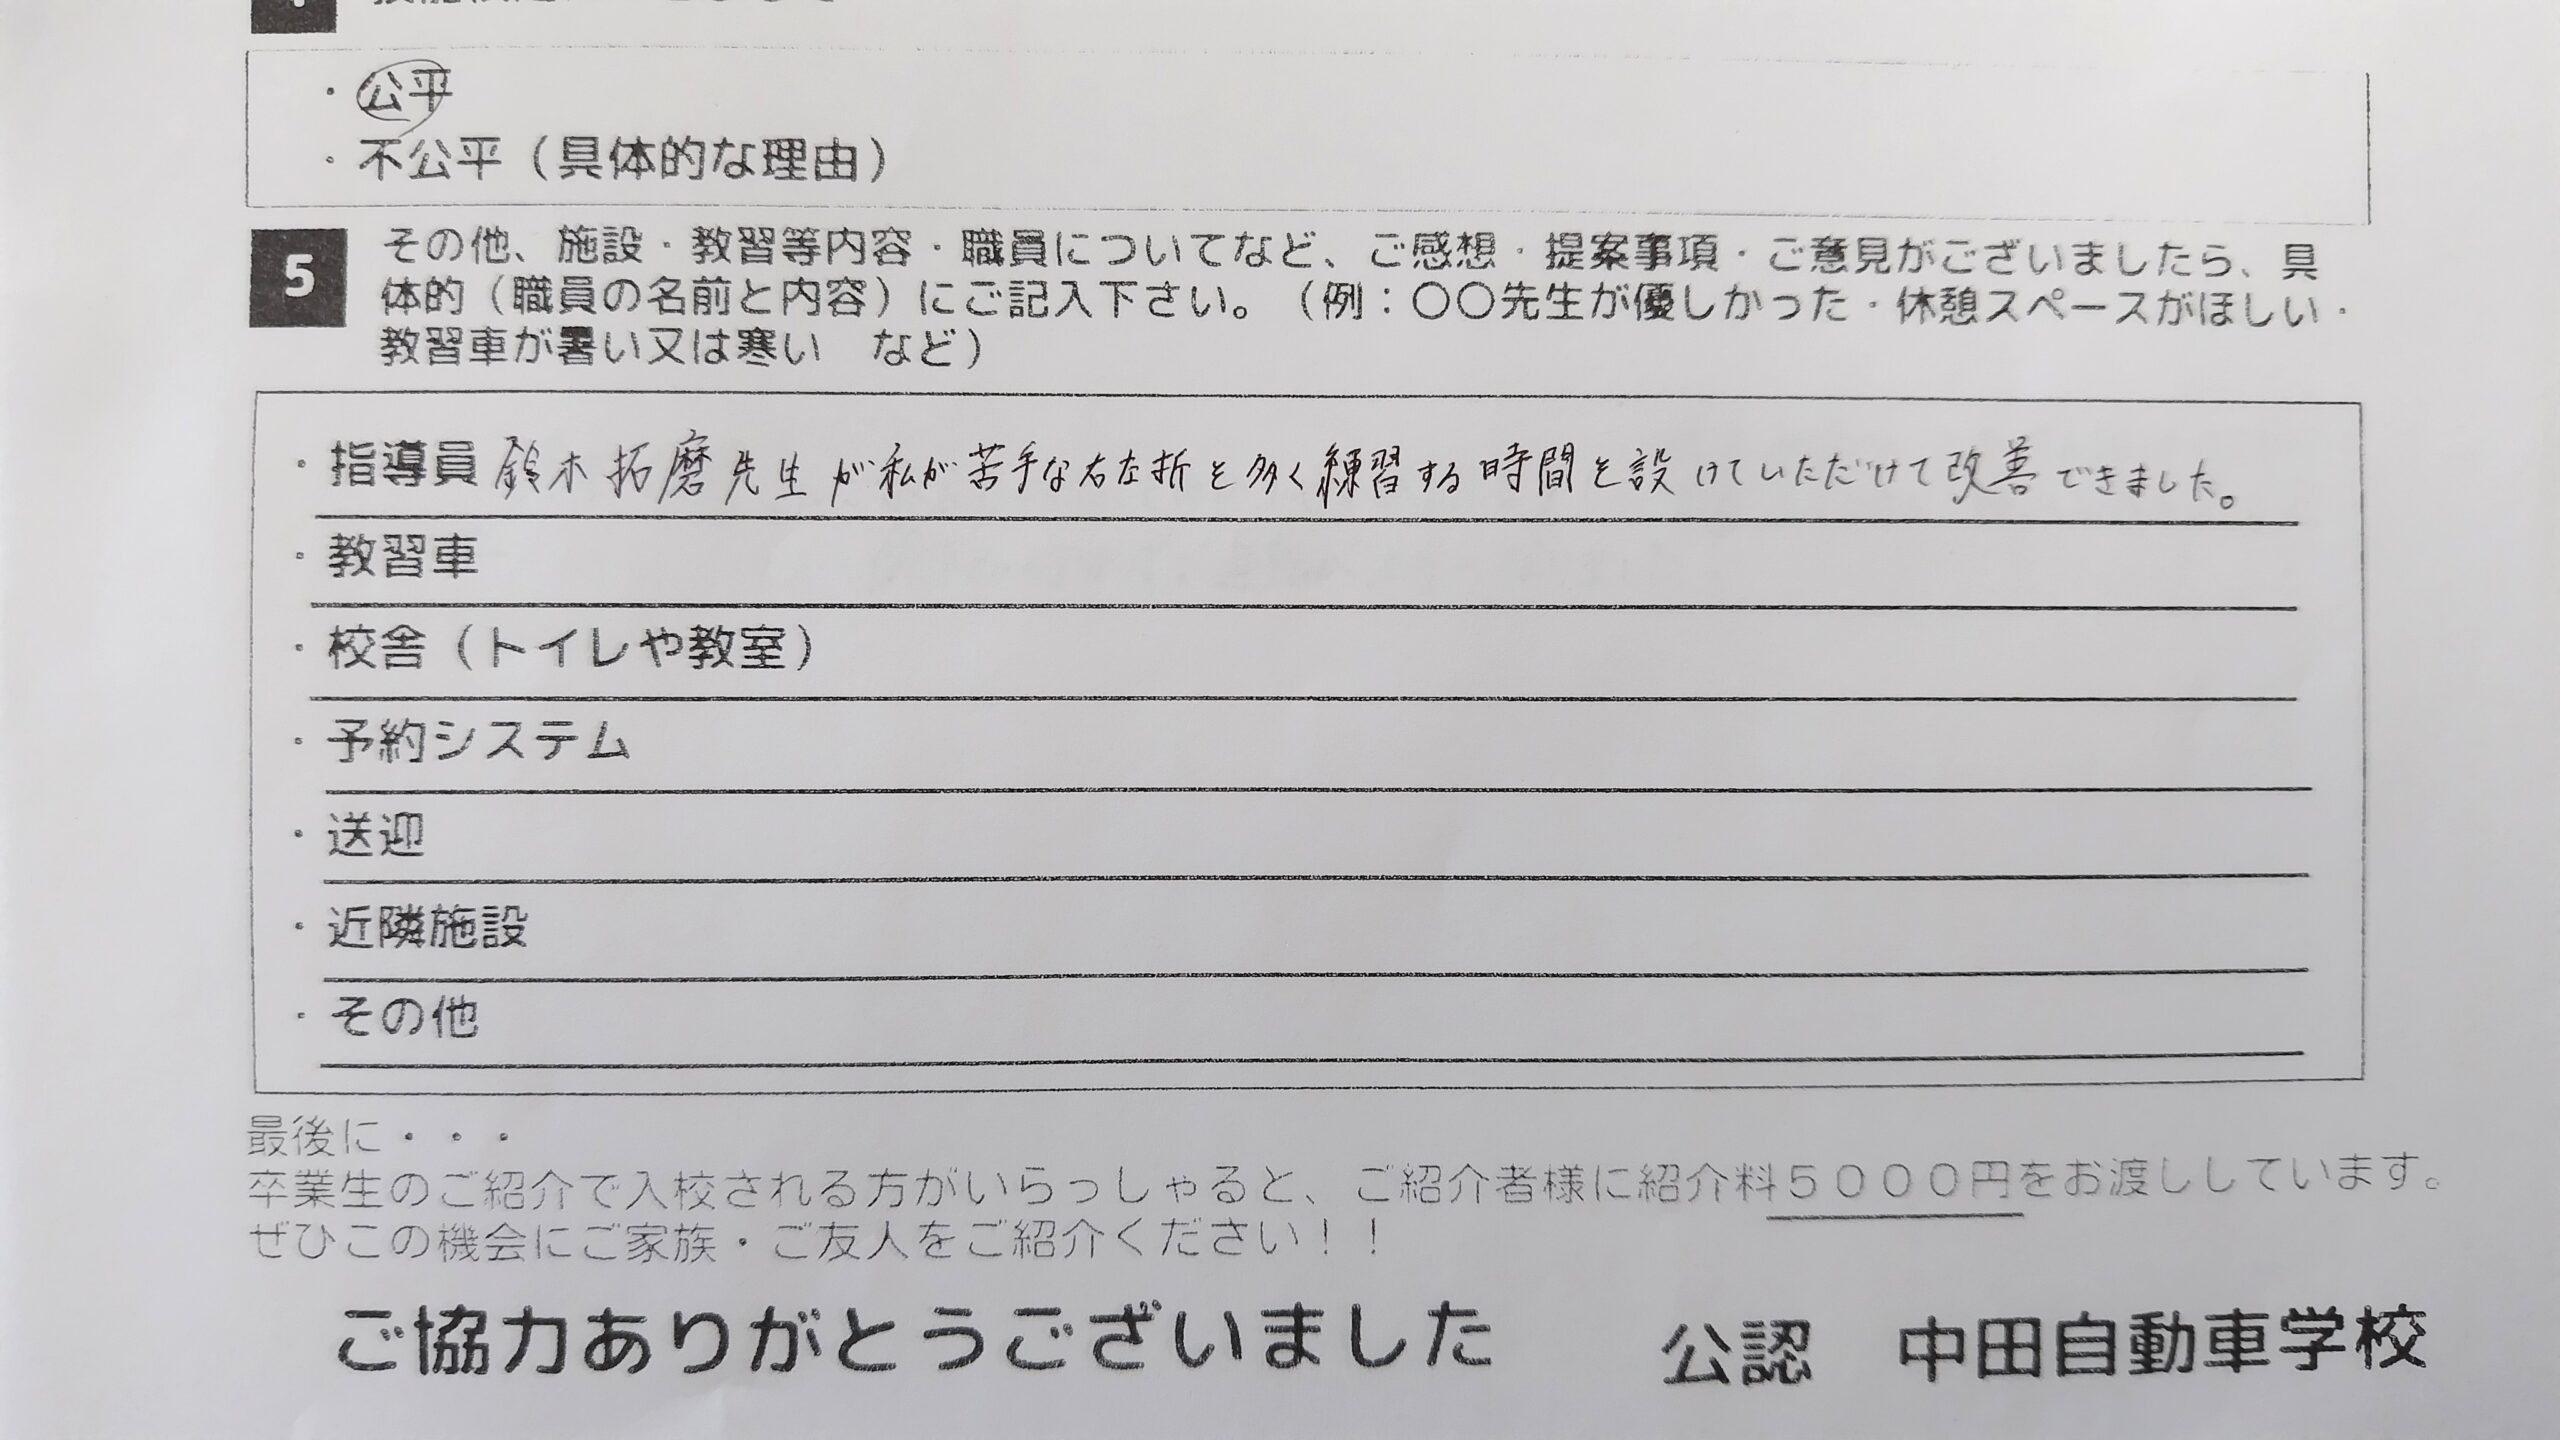 ・公平
・不公平（具体的な理由）
5 その他、施設・教習等内容・職員についてなど、ご感想・提案事項・ご意見がございましたら、具
体的（職員の名前と内容）にご記入下さい。（例：〇〇先生が優しかった・休憩スペースがほしい・
教習車が暑い又は寒い　など）
・指導員 鈴木拓磨先生が私が苦手な右左折を多く練習する時間を設けていただけて改善できました。
・教習車
・校舎（トイレや教室）
・予約システム
・送迎
・近隣施設
・その他
最後に・・・
卒業生のご紹介で入校される方がいらっしゃると、ご紹介者様に紹介料５０００円をお渡ししています。
ぜひこの機会にご家族・ご友人をご紹介ください！！
ご協力ありがとうございました　公認　中田自動車学校